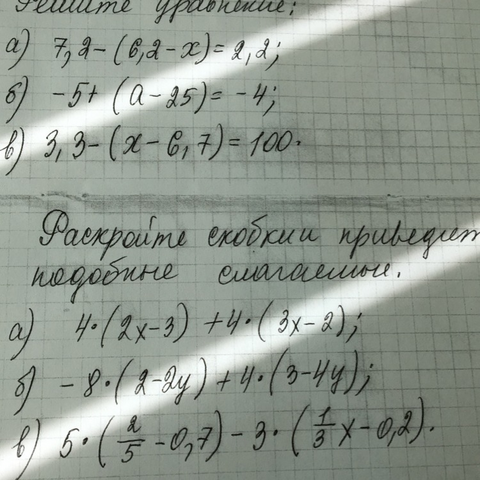 Решите уравнение:
а) 7,2-(6,2-x)=2,2;
б) -5+(a-25)=-4;
в) 3,3-(x-6,7)=100.
Раскройте скобкии приведите
подобные слагаемые.
а) 4·(2x-3)+4·(3x-2);
б) -8·(2-2y)+4·(3-4y);
в) 5·(2/5-0,7)-3·(1/3x-0,2).